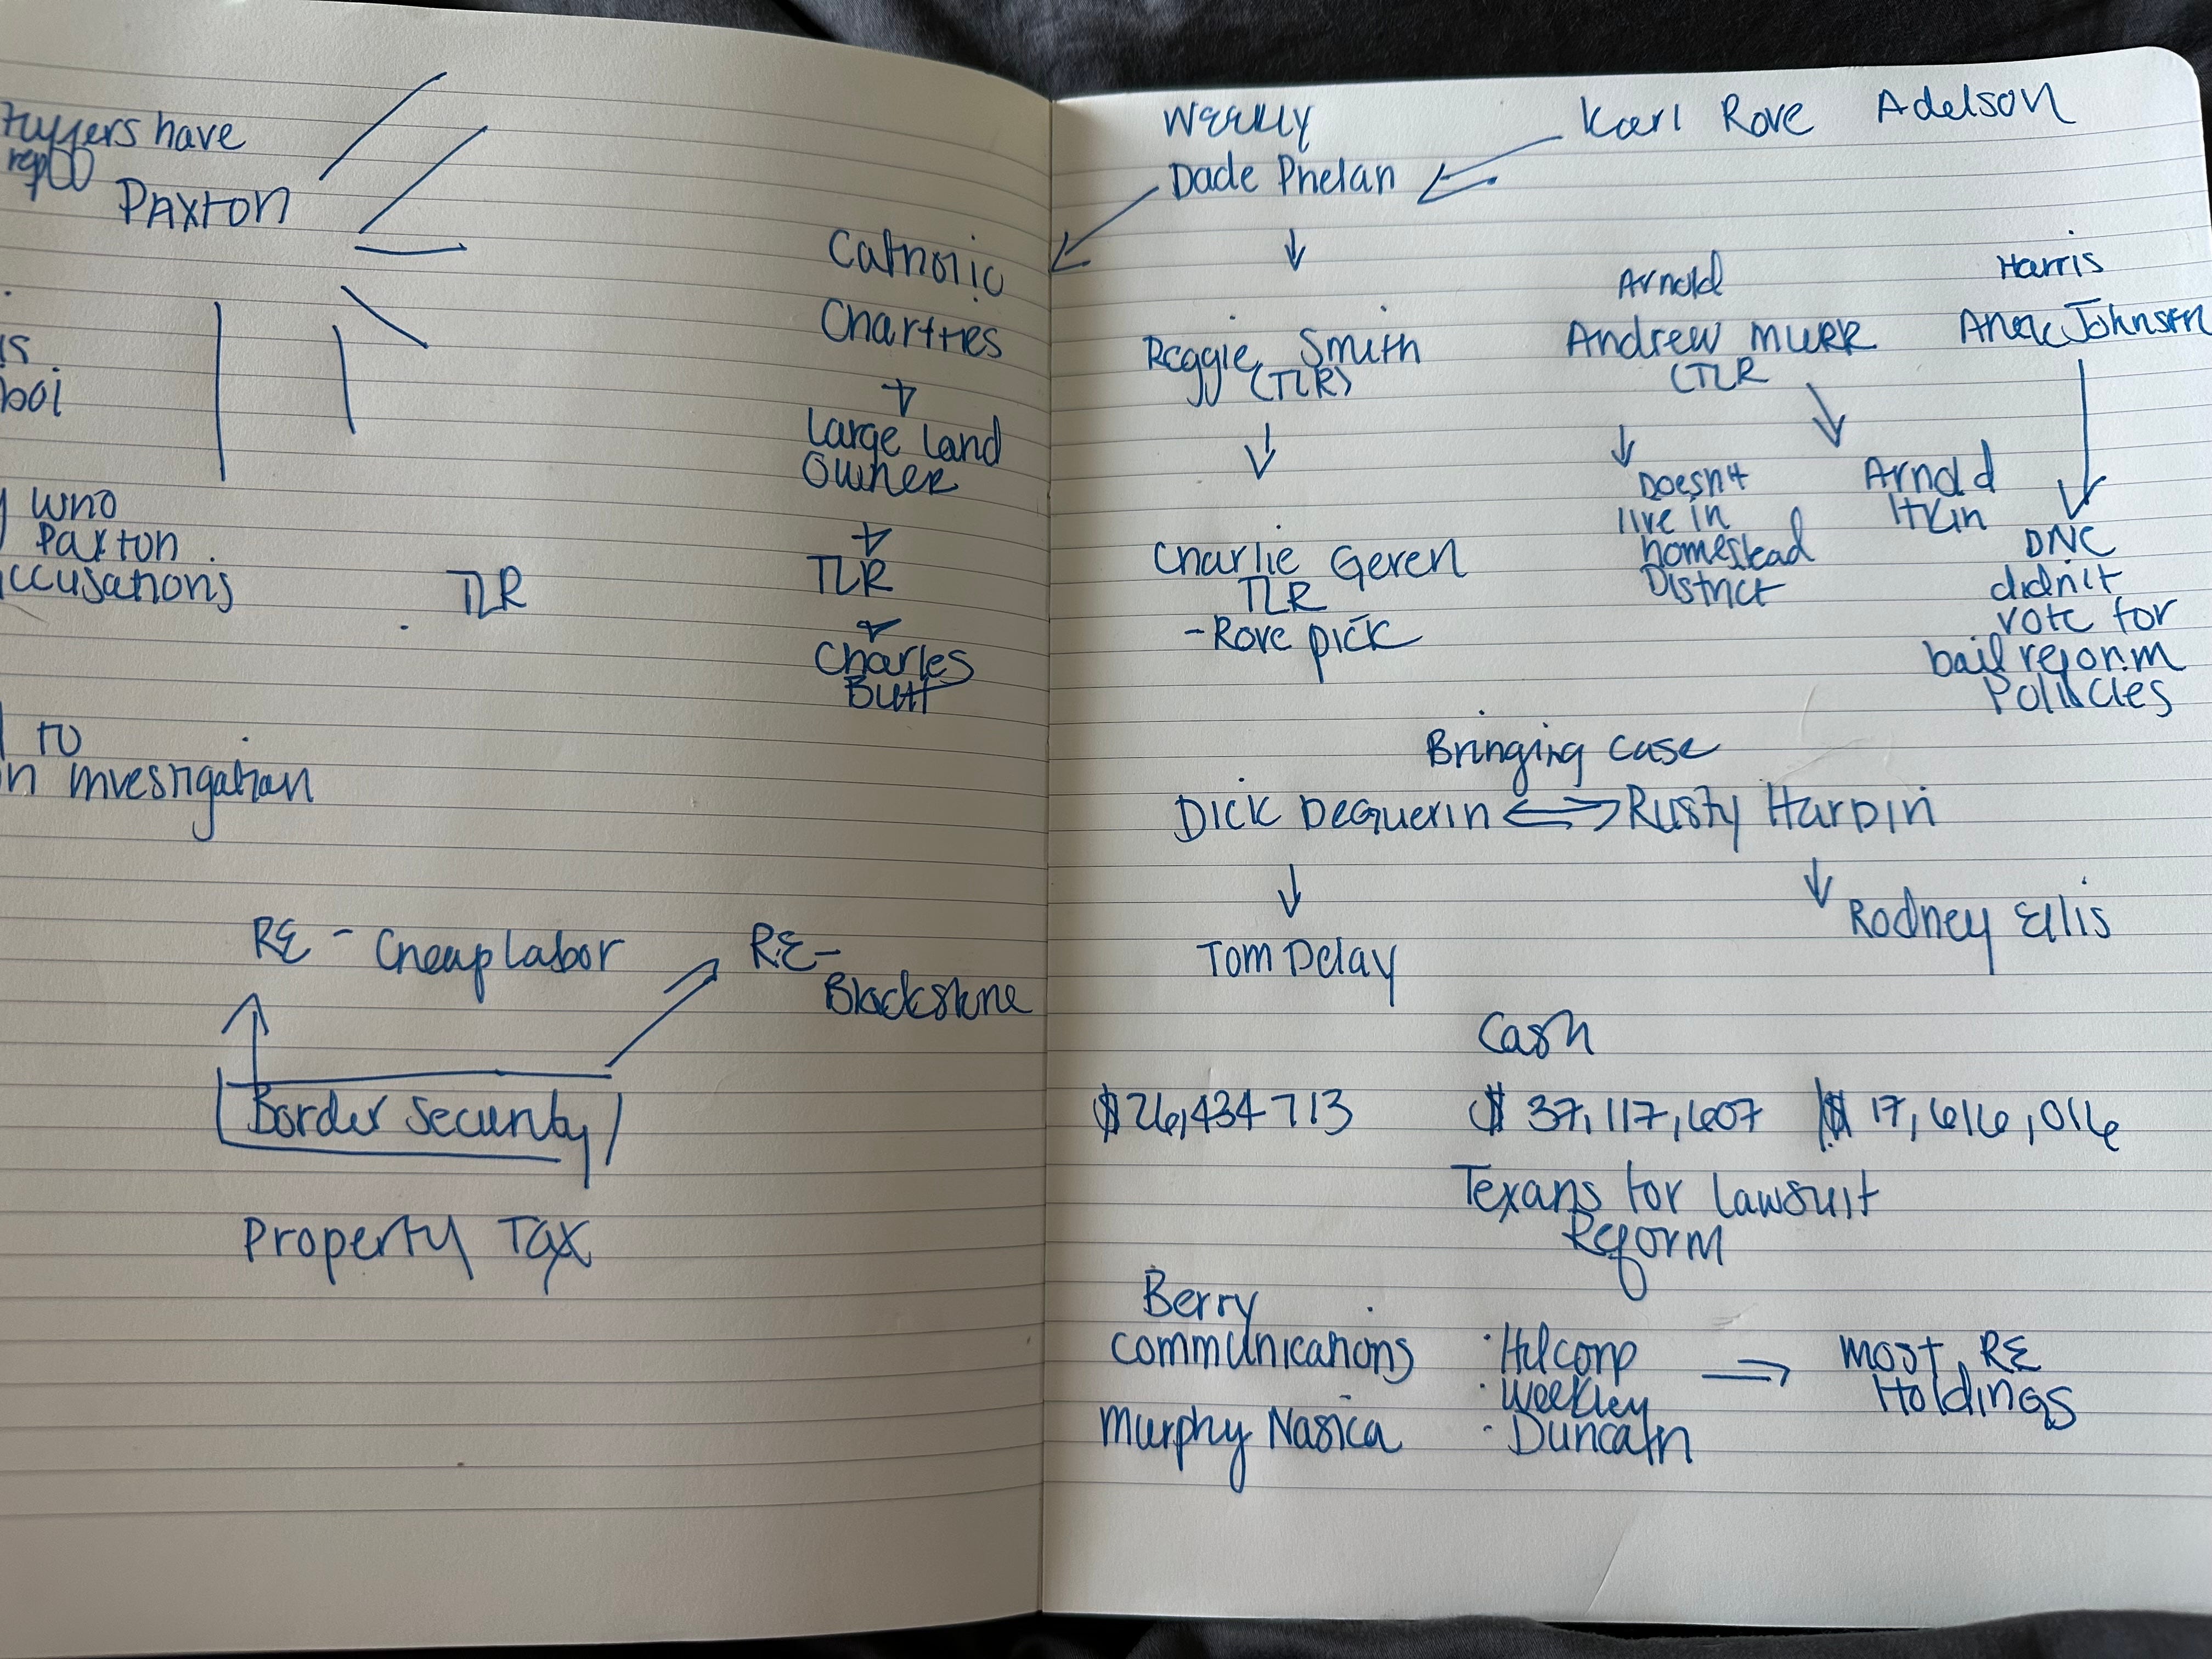 have
Paxton
who
Paxton
ccusations
TLR
to
n investigation
RE - Cheap labor
RE-
Blackstone
Border Security
Property Tax
Catholic
Charities
Large land
Owner
TLR
Charles
Butt
Weekly
Dade Phelan
Karl Rove Adelson
Reggie Smith
(TLR)
Charlie Geren
TLR
- Rove pick
Arnold
Andrew Murr
(TLR
Doesn't
live in
homestead
District
Arnold
Itkin
Harris
Johnson
DNC
didn't
vote for
bail reform
Policies
Bringing case
Dick DeGuerin Rusty Hardin
Tom Delay
Rodney Ellis
Cash
$26,434 713 $ 37,117,607 $ 17,616,016
Texans for Lawsuit
Reform
Berry
communications
Murphy Nasica
· Hilcorp
· Weekley
· Duncan
most RE
Holdings